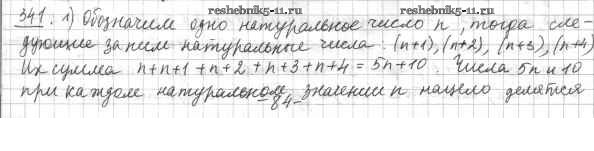 reshebnik5-11.ru reshebnik5-11.ru
341. 1) Обозначим одно натуральное число n, тогда сле-
дующие за ним натуральные числа: (n+1), (n+2), (n+3), (n+4)
Их сумма n+n+1+n+2+n+3+n+4=5n+10. Числа 5n и 10
при каждом натуральном значении n нацело делятся
-84-
reshebnik5-11.ru reshebnik5-11.ru